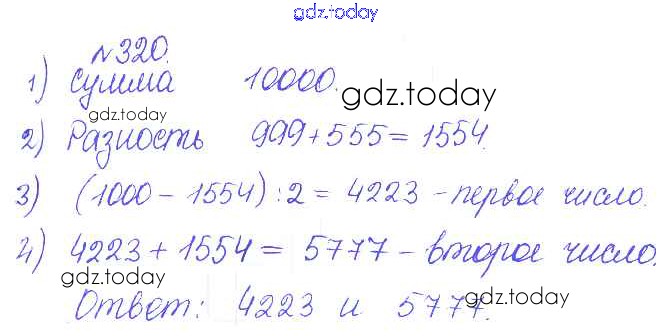 gdz.today
№320.
1) Сумма 10000.
gdz.today
gdz.today
2) Разность 999+555=1554.
3) (1000-1554):2=4223-первое число.
4) 4223+1554=5777-второе число.
gdz.today
Ответ: 4223 и 5777.
gdz.today